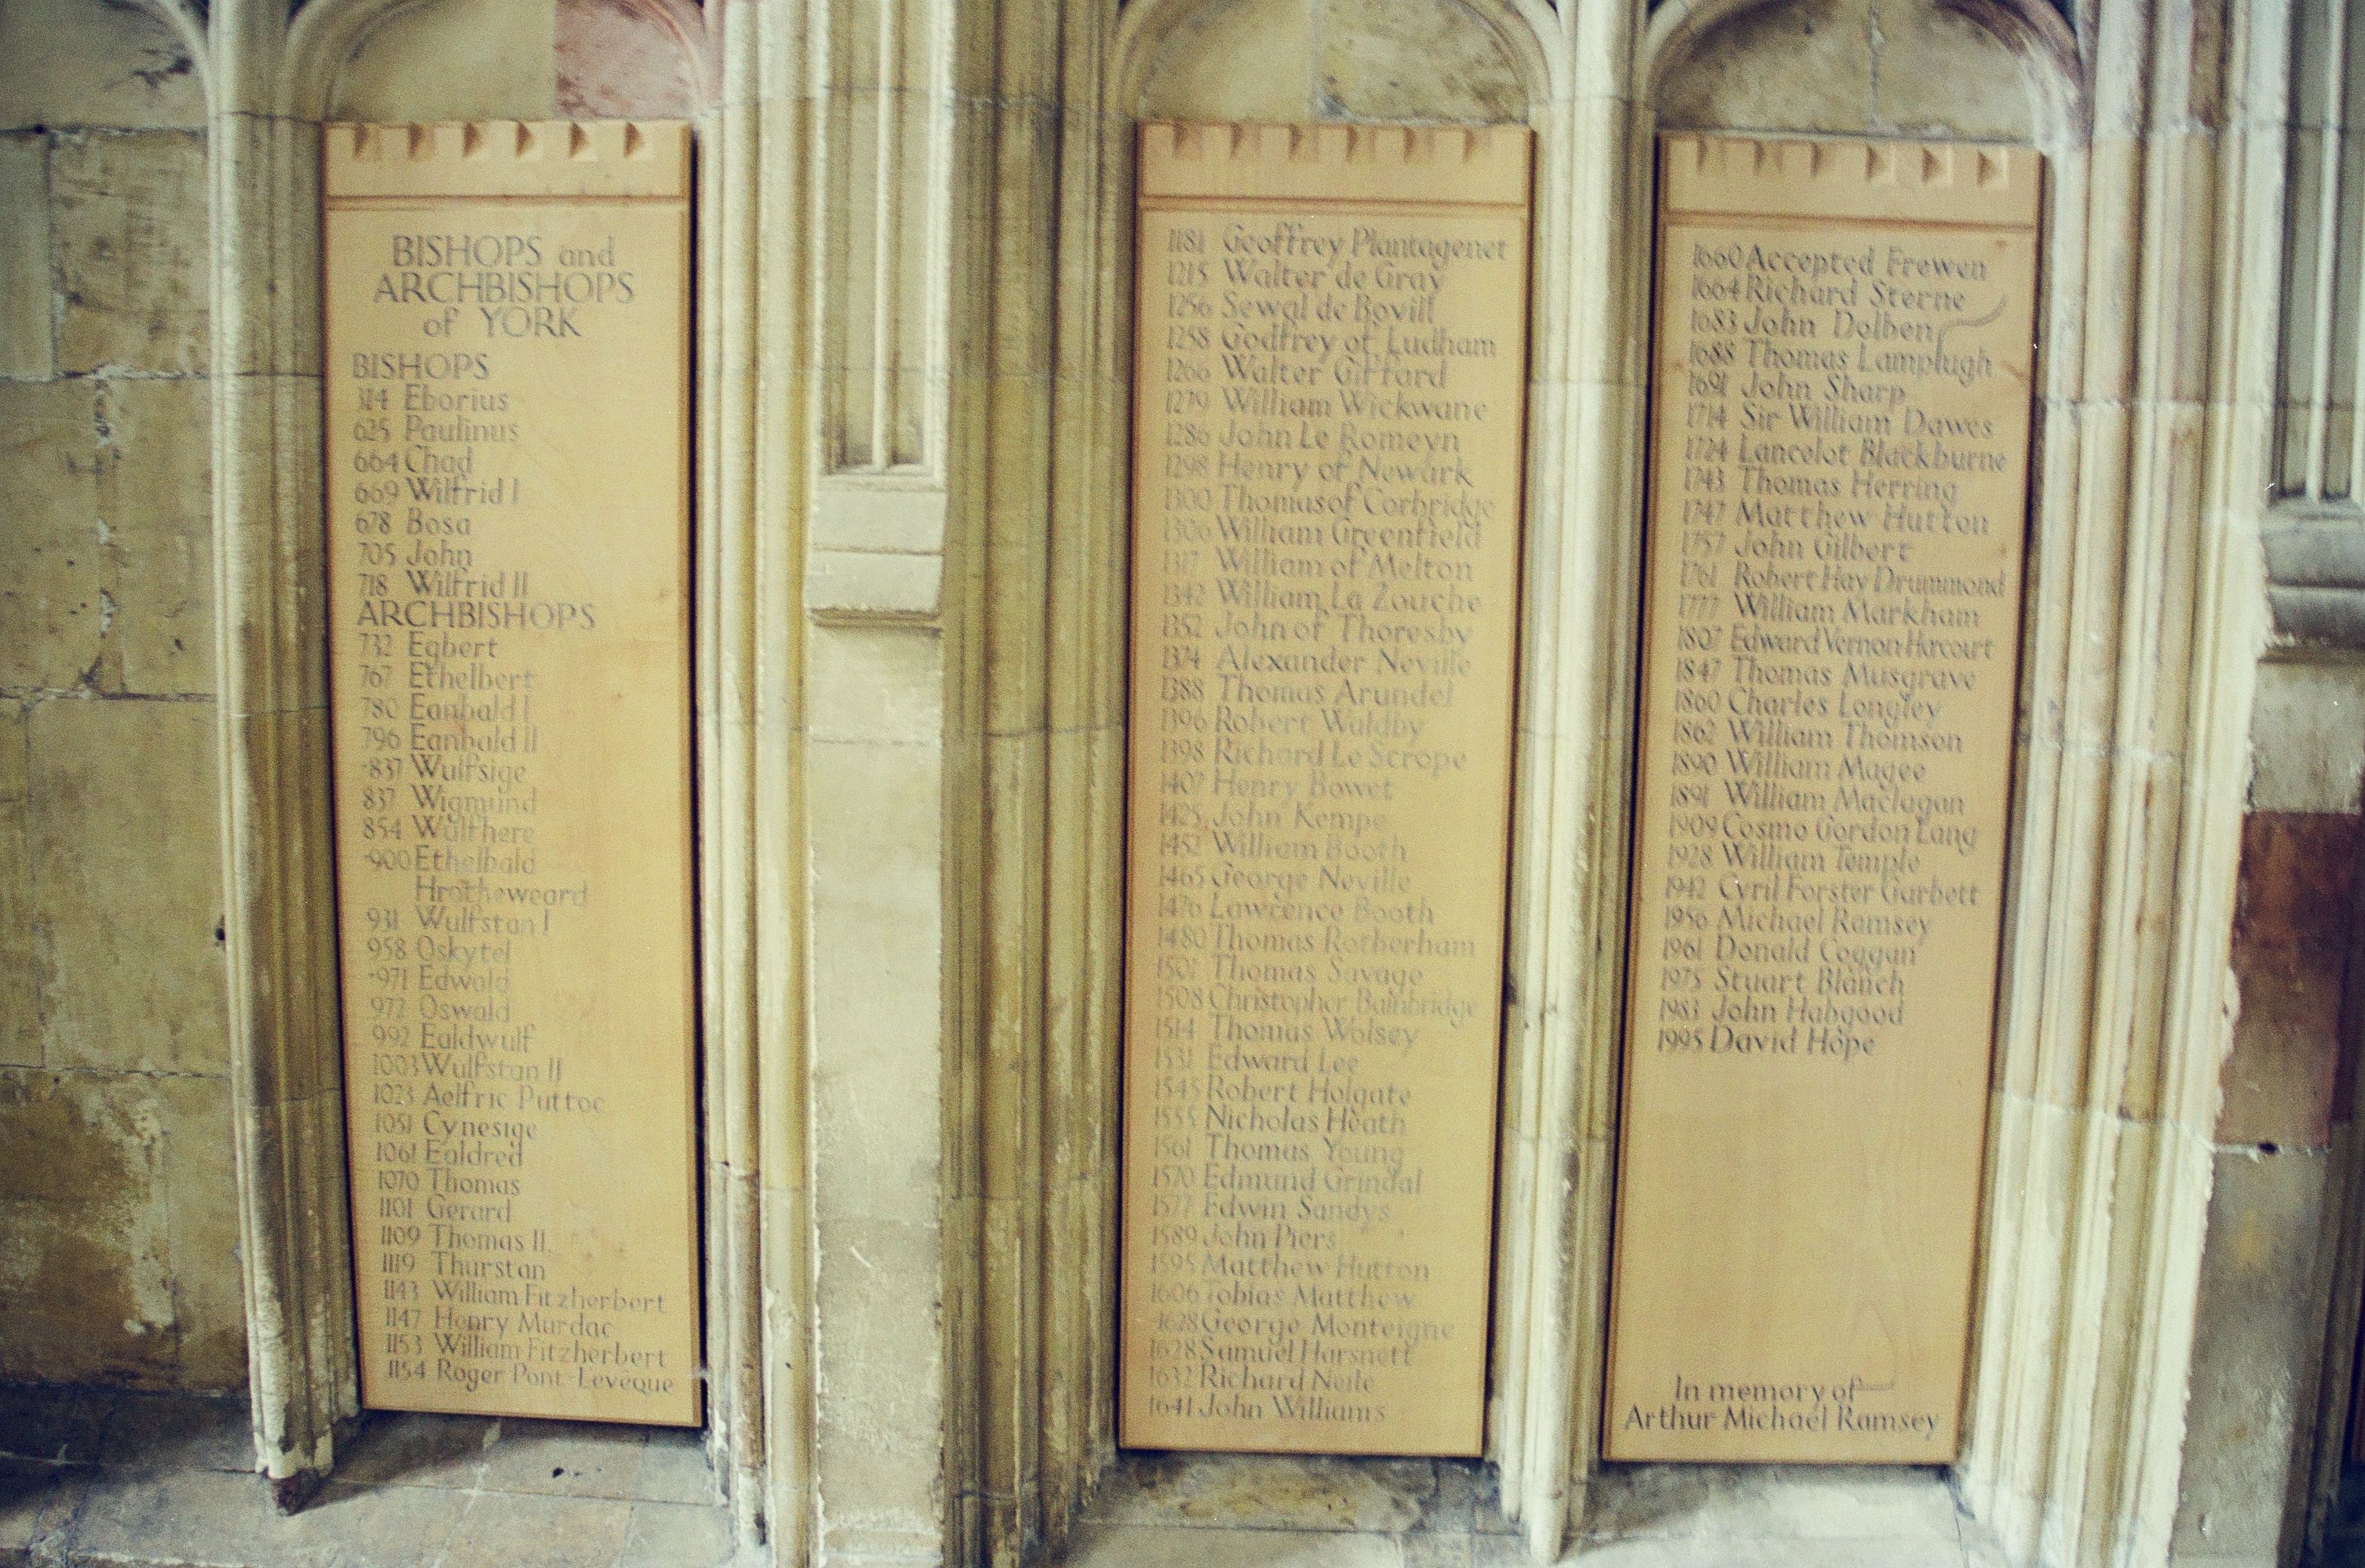 BISHOPS and
ARCHBISHOPS
of YORK
BISHOPS
314 Eborius
625 Paulinus
664 Chad
669 Wilfrid I
678 Bosa
705 John
718 Wilfrid II
ARCHBISHOPS
732 Egbert
767 Ethelbert
780 Eanbald I
796 Eanbald II
-837 Wulfsige
837 Wigmund
854 Wulfhere
-900 Ethelbald
Hrotheweard
931 Wulfstan I
958 Oskytel
-971 Edwald
972 Oswald
992 Ealdwulf
1003 Wulfstan II
1023 Aelfric Puttoc
1051 Cynesige
1061 Ealdred
1070 Thomas
1101 Gerard
1109 Thomas II
1119 Thurstan
1143 William Fitzherbert
1147 Henry Murdac
1153 William Fitzherbert
1154 Roger Pont-Leveque
1181 Geoffrey Plantagenet
1215 Walter de Gray
1256 Sewal de Bovill
1258 Godfrey of Ludham
1266 Walter Giffard
1279 William Wickwane
1286 John Le Romeyn
1298 Henry of Newark
1300 Thomas of Corbridge
1306 William Greenfield
1317 William of Melton
1342 William La Zouche
1352 John of Thoresby
1374 Alexander Neville
1388 Thomas Arundel
1396 Robert Waldby
1398 Richard Le Scrope
1407 Henry Bowet
1425 John Kempe
1452 William Booth
1465 George Neville
1476 Lawrence Booth
1480 Thomas Rotherham
1501 Thomas Savage
1508 Christopher Bainbridge
1514 Thomas Wolsey
1531 Edward Lee
1545 Robert Holgate
1555 Nicholas Heath
1561 Thomas Young
1570 Edmund Grindal
1577 Edwin Sandys
1589 John Piers
1595 Matthew Hutton
1606 Tobias Matthew
-1628 George Monteigne
1628 Samuel Harsnett
1632 Richard Neile
1641 John Williams
1660 Accepted Frewen
1664 Richard Sterne
1683 John Dolben
1688 Thomas Lamplugh
1691 John Sharp
1714 Sir William Dawes
1724 Lancelot Blackburne
1743 Thomas Herring
1747 Matthew Hutton
1757 John Gilbert
1761 Robert Hay Drummond
1777 William Markham
1807 Edward Vernon-Harcourt
1847 Thomas Musgrave
1860 Charles Longley
1862 William Thomson
1890 William Magee
1891 William Maclagan
1909 Cosmo Gordon Lang
1928 William Temple
1942 Cyril Forster Garbett
1956 Michael Ramsey
1961 Donald Coggan
1975 Stuart Blanch
1983 John Habgood
1995 David Hope
In memory of
Arthur Michael Ramsey